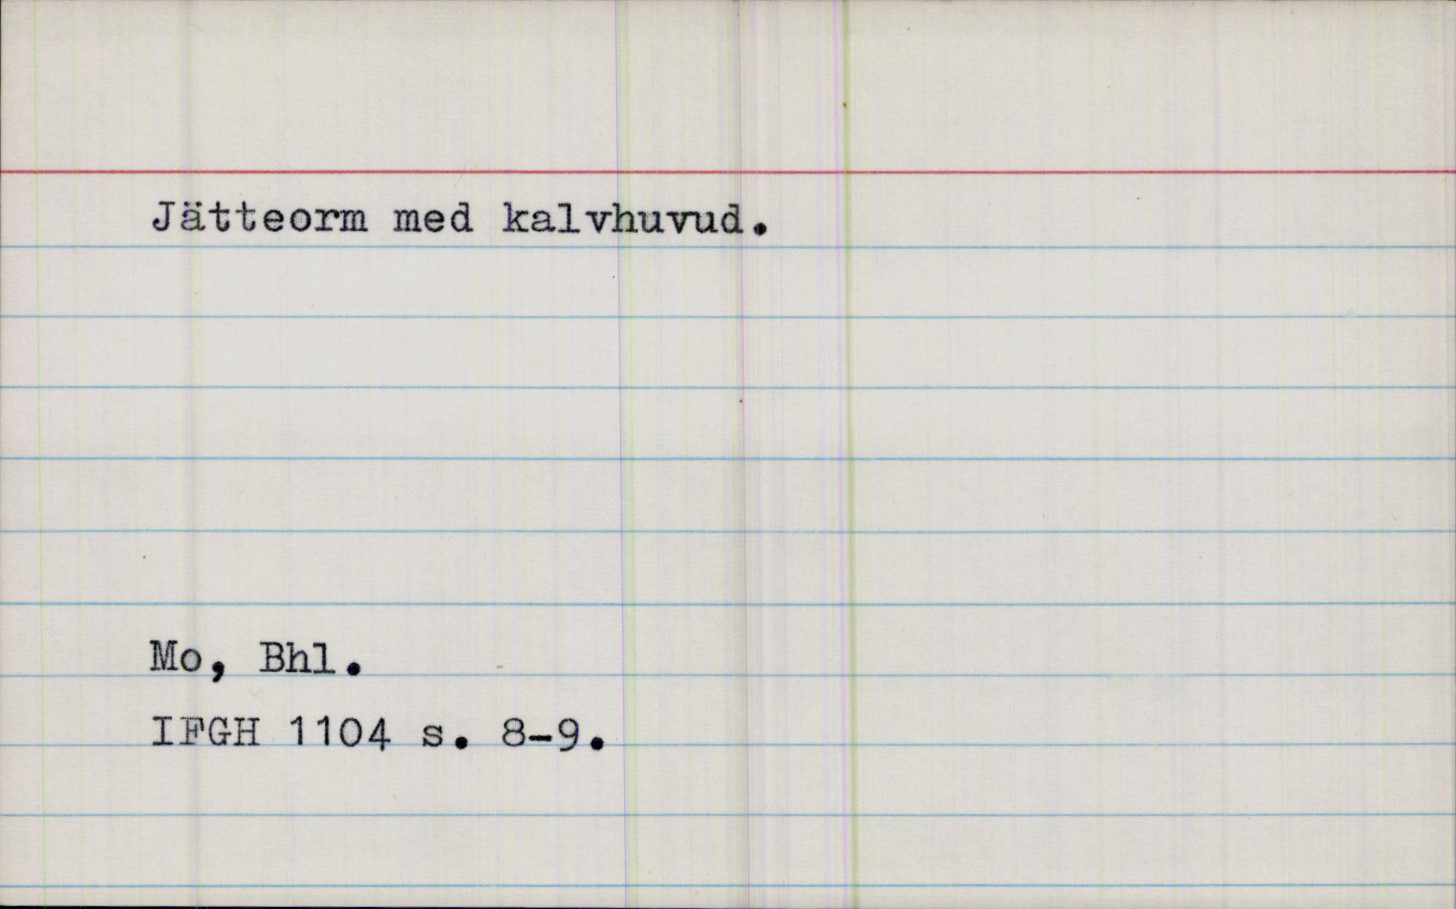 Jätteorm med kalvhuvud.
Mo, Bhl.
IFGH 1104 s. 8-9.